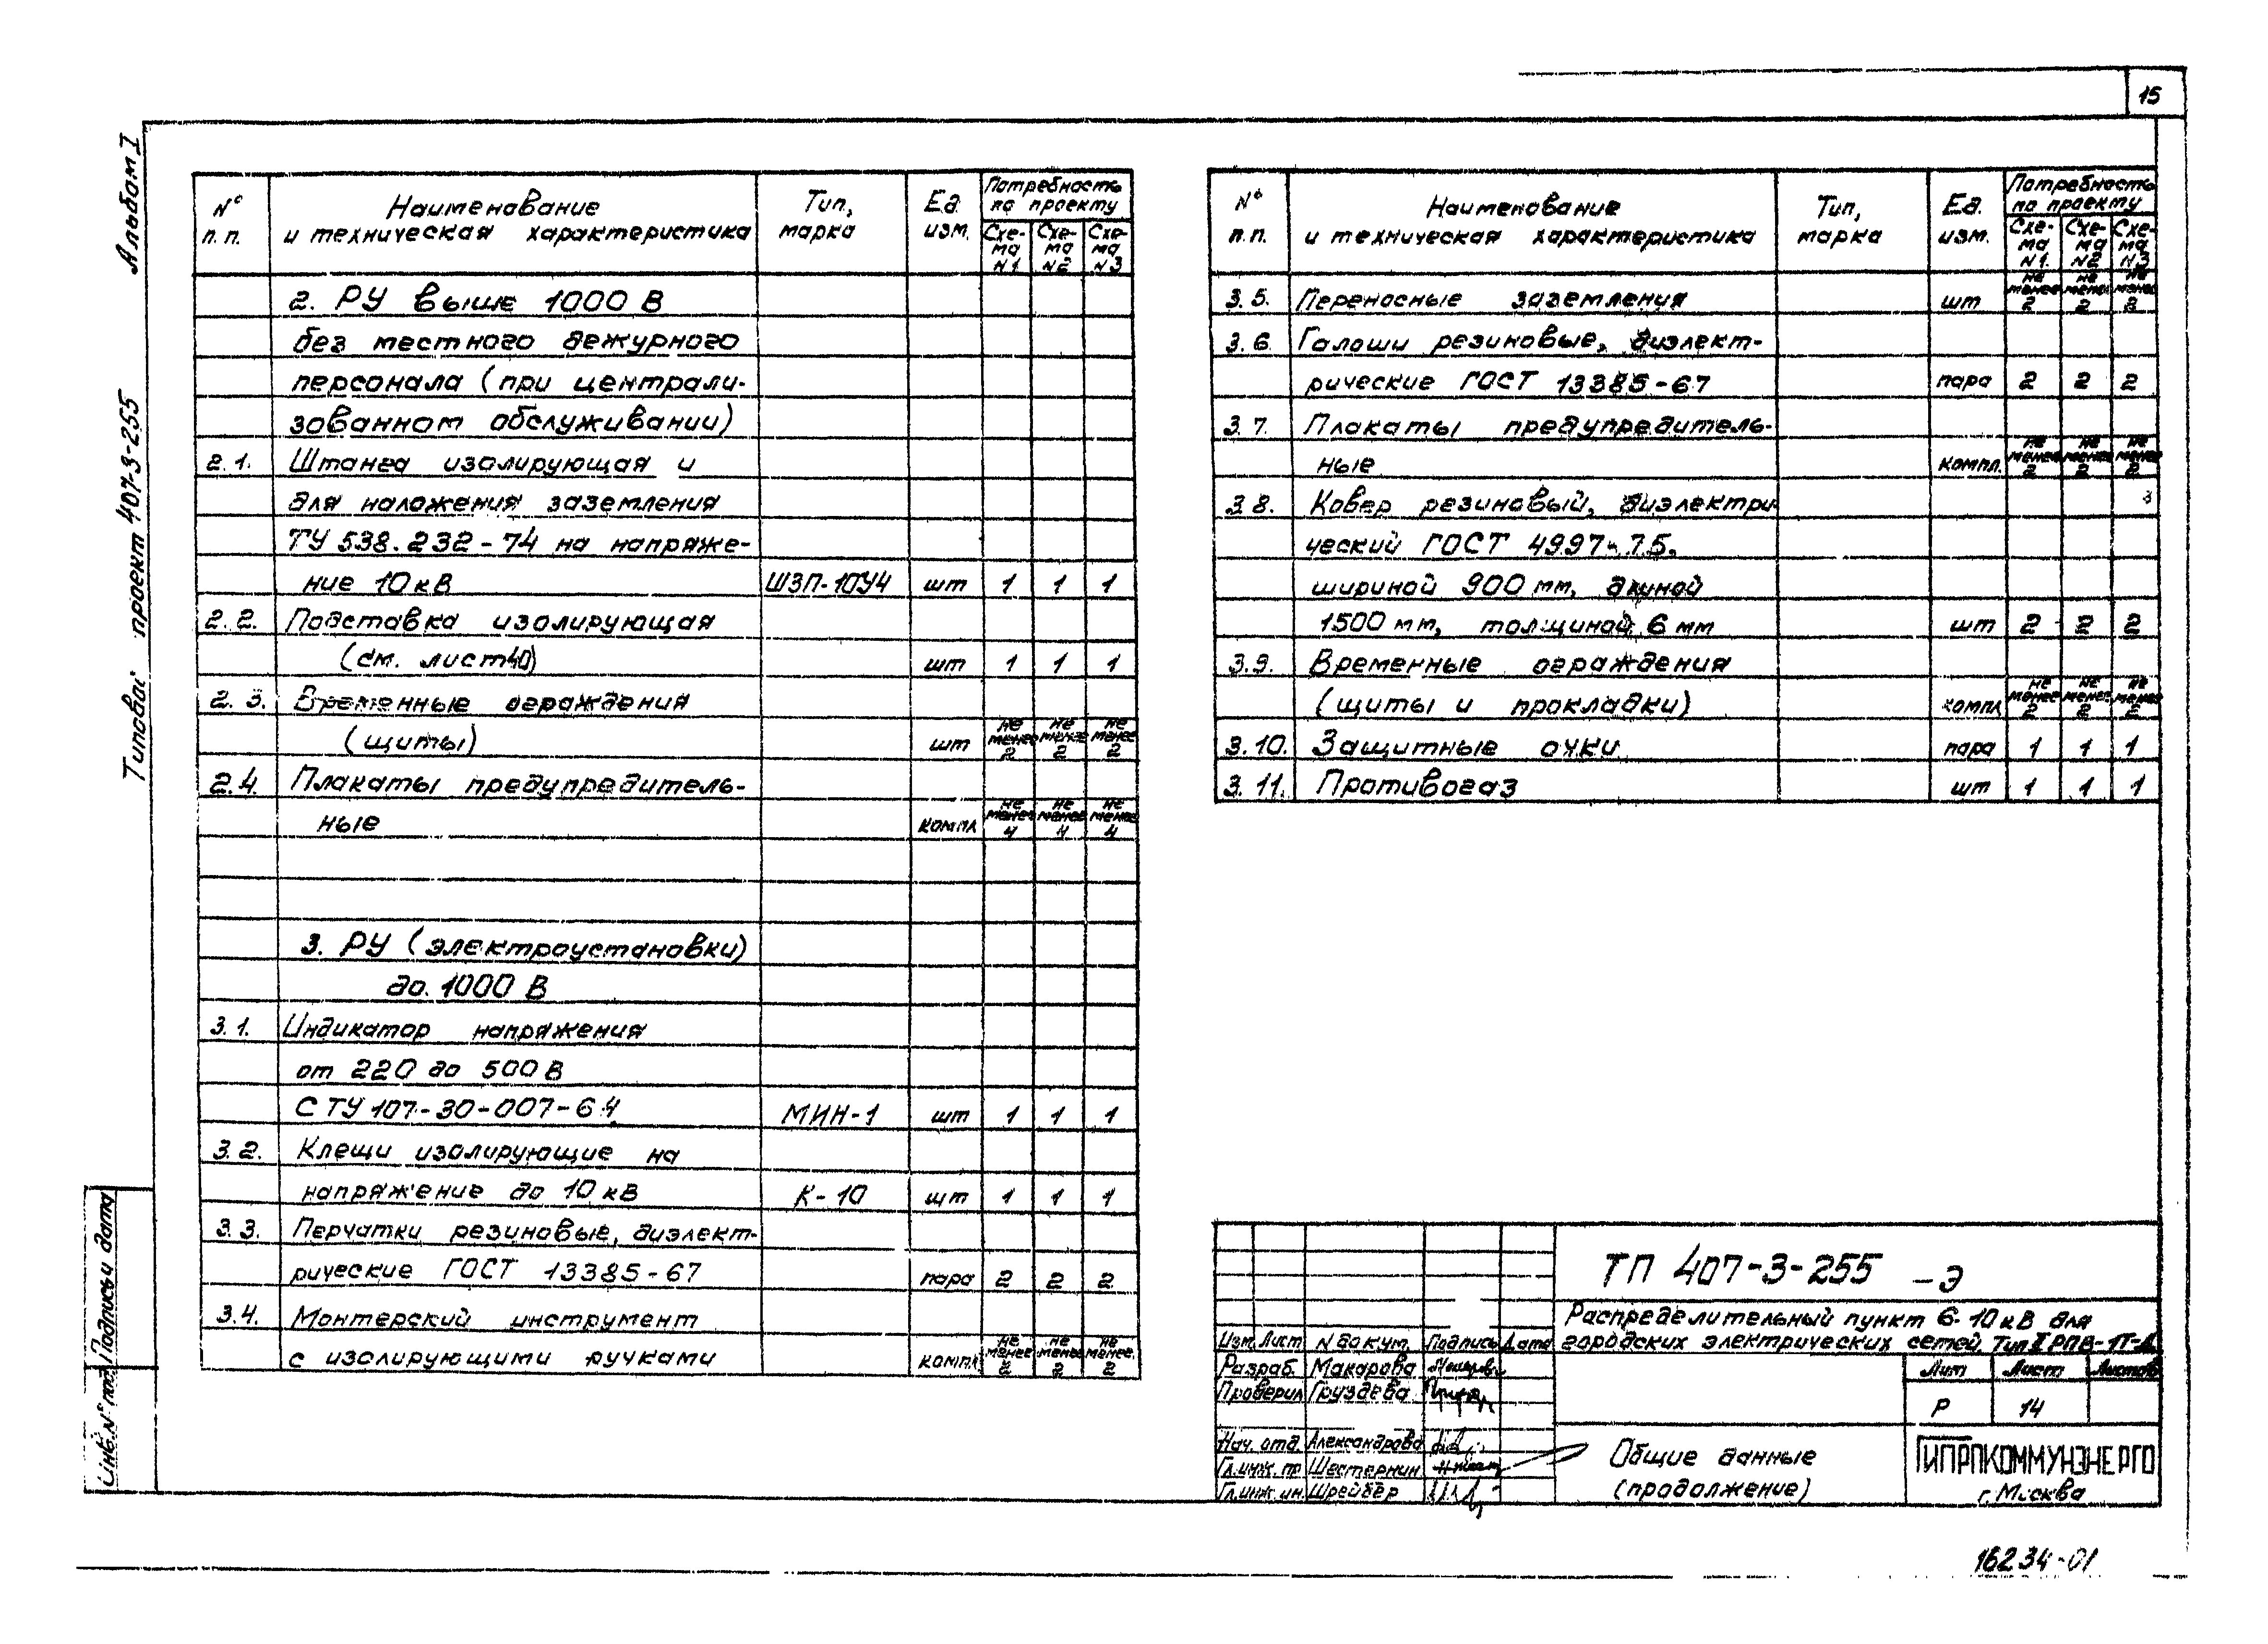 15
Альбом I
Типовой проект 407-3-255
Подпись и дата
Инв. N° подл.
N° п.п. Наименование и техническая характеристика Тип, марка Ед. изм. Потребность по проекту
Схема N1 Схема N2 Схема N3
2. РУ выше 1000 В
без местного дежурного
персонала (при централи-
зованном обслуживании)
2.1. Штанга изолирующая и
для наложения заземления
ТУ 538.232-74 на напряже-
ние 10 кВ ШЗП-10У4 шт 1 1 1
2.2. Подставка изолирующая
(см. лист 40) шт 1 1 1
2.3. Временные ограждения
(щиты) шт не менее 2 не менее 2 не менее 2
2.4. Плакаты предупредитель-
ные компл не менее 4 не менее 4 не менее 4
3. РУ (электроустановки)
до 1000 В
3.1. Индикатор напряжения
от 220 до 500 В
СТУ 107-30-007-64 МИН-1 шт 1 1 1
3.2. Клещи изолирующие на
напряжение до 10 кВ К-10 шт 1 1 1
3.3. Перчатки резиновые, диэлект-
рические ГОСТ 13385-67 пара 2 2 2
3.4. Монтерский инструмент
с изолирующими ручками компл не менее 2 не менее 2 не менее 2
N° п.п. Наименование и техническая характеристика Тип, марка Ед. изм. Потребность по проекту
Схема N1. Схема N2 Схема N3
3.5. Переносные заземления шт не менее 2 не менее 2 не менее 2
3.6 Галоши резиновые, диэлект-
рические ГОСТ 13385-67 пара 2 2 2
3.7. Плакаты предупредитель-
ные компл. не менее 2 не менее 2 не менее 2
3.8. Ковер резиновый, диэлектри
ческий ГОСТ 4997-75.
шириной 900 мм, длиной
1500 мм, толщиной 6 мм шт 2 2 2
3.9. Временные ограждения
(щиты и прокладки) компл не менее 2 не менее 2 не менее 2
3.10. Защитные очки пара 1 1 1
3.11. Противогаз шт 1 1 1
ТП 407-3-255 -Э
Распределительный пункт 6-10 кВ для
городских электрических сетей. Тип II РПВ-1Т-
Изм. Лист N докум. Подпись Дата
Разраб. Макарова
Проверил Груздева
Нач. отд. Александрова
Гл. инж. пр Шестернин
Гл. инж. ин. Шрейбер
Лит Лист Листов
Р 14
Общие данные
(продолжение)
ГИПРОКОММУНЭНЕРГО
г. Москва
16234-01